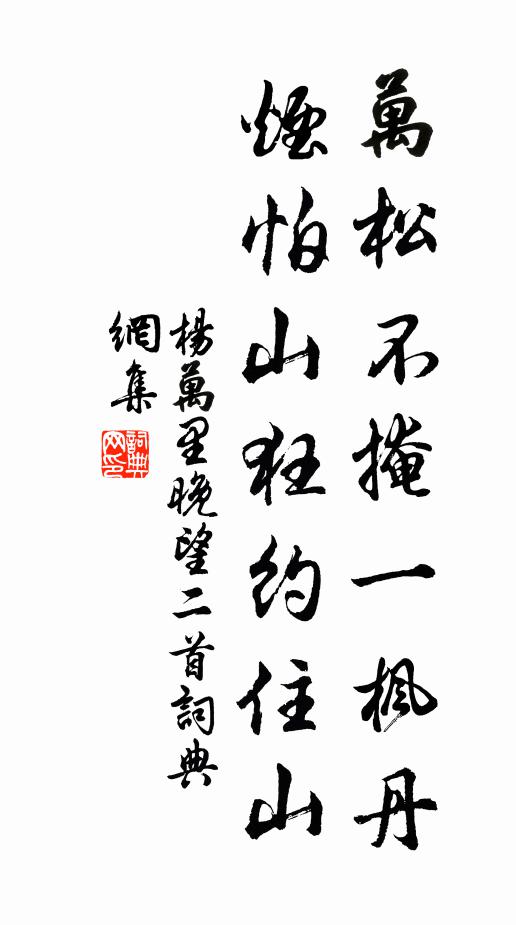 萬松不掩一楓丹
煙怕山狂約住山
楊萬里晚望二首詞典
網集
詞典
网印